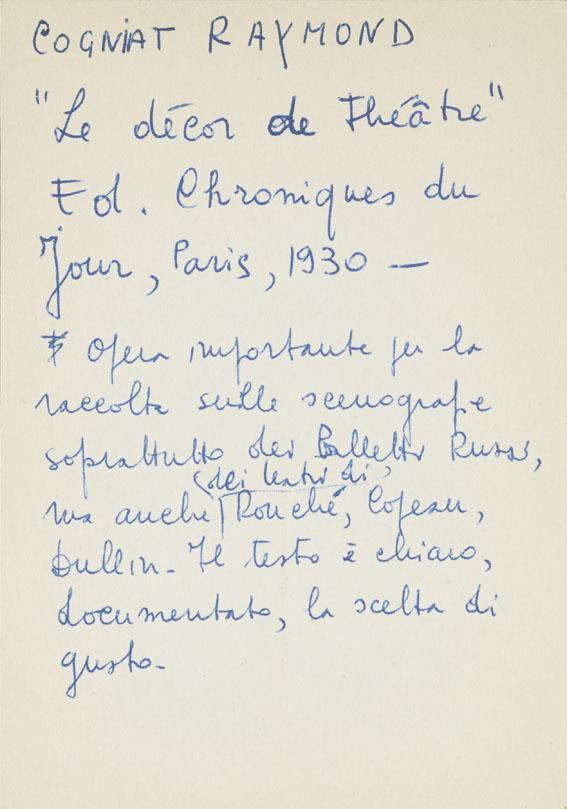 COGNIAT RAYMOND
"Le décor de Théâtre"
Ed. Chroniques du
Jour, Paris, 1930 —
Opera importante per la
raccolta sulle scenografie
soprattutto dei Balletti Russi,
(dei teatri di)
ma anche Rouché, Copeau,
Dullin - Il testo è chiaro,
documentato, la scelta di
gusto -